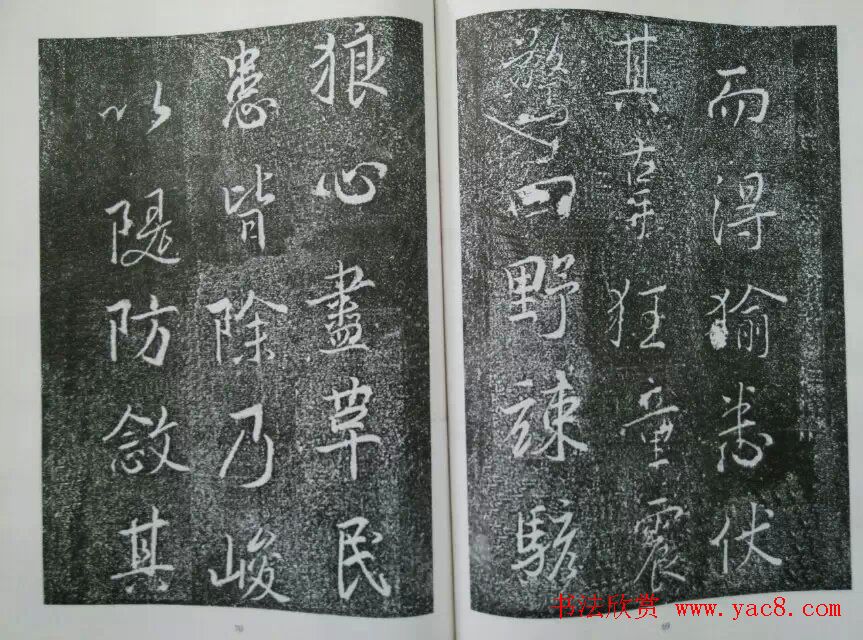 而得㺄悉伏
其辜狂童震
驚四野竦駭
狼心盡革民
患皆除乃峻
以隄防斂其
70
69
书法欣赏 www.yac8.com